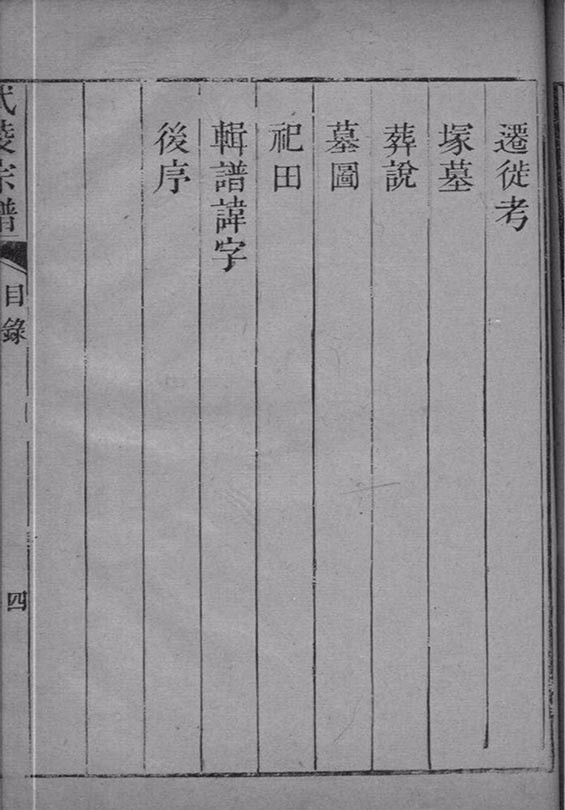 遷徙考
塚墓
葬說
墓圖
祀田
輯譜諱字
後序
武陵宗譜
目錄
四